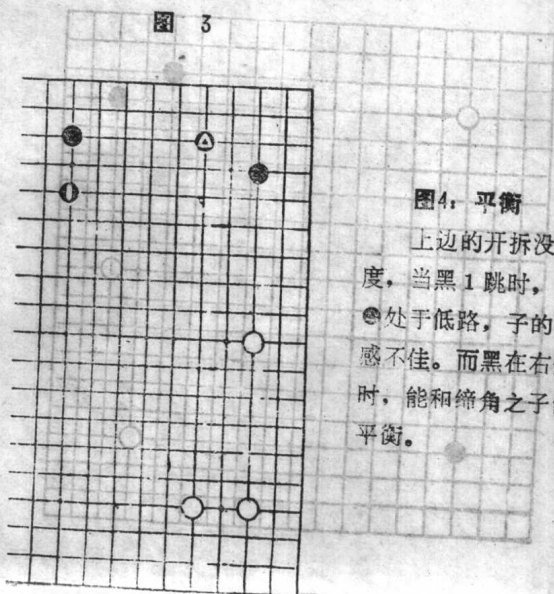 图 3
图4: 平衡
上边的开拆没
度，当黑1跳时，
处于低路，子的
感不佳。而黑在右
时，能和缔角之子
平衡。